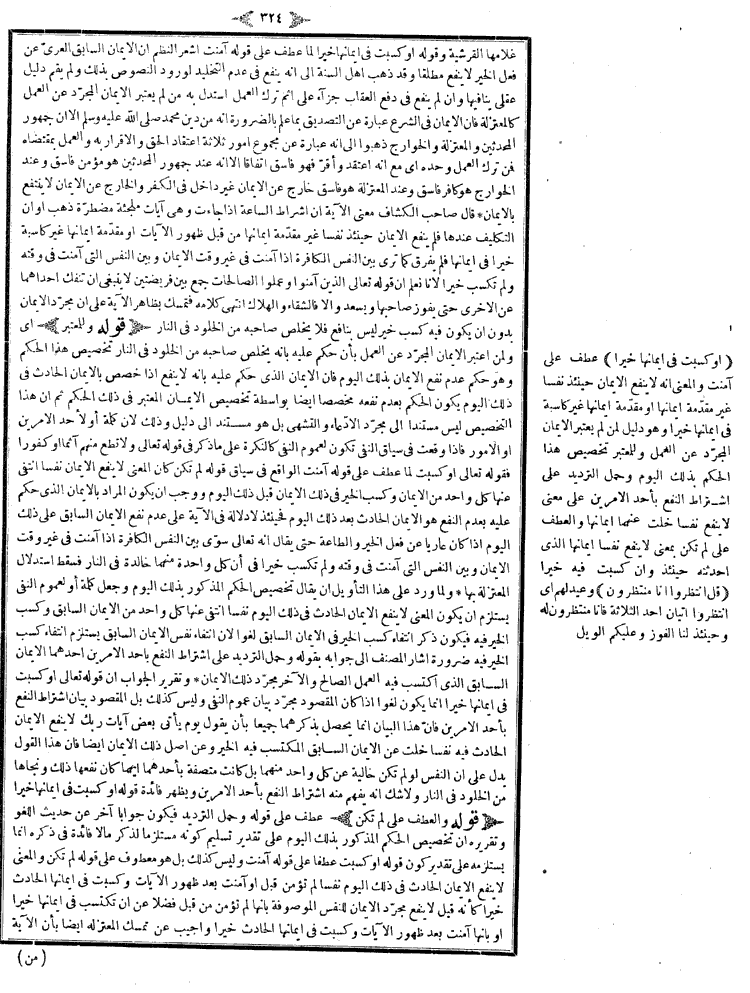 ٣٢٤
غلامها القرشية وقوله اوكسبت فى ايمانها خيرا لما عطف على قوله آمنت اشعر النظم ان الايمان السابق العرىّ عن
فعل الخير لاينفع مطلقا وقد ذهب اهل السنة الى انه ينفع فى عدم التخليد لورود النصوص بذلك ولم يقم دليل
عقلى ينافيها وان لم ينفع فى دفع العقاب جزآء على اثم ترك العمل استدل به من لم يعتبر الايمان المجرّد عن العمل
كالمعتزلة فان الايمان فى الشرع عبارة عن التصديق بماعلم بالضرورة انه من دين محمد صلى الله عليه وسلم الا ان جمهور
المحدثين والمعتزلة والخوارج ذهبوا الى انه عبارة عن مجموع امور ثلاثة اعتقاد الحق والاقرار به والعمل بمقتضاه
فمن ترك العمل وحده اى مع انه اعتقد وأقرّ فهو فاسق اتفاقا الا انه عند جمهور المحدثين هو مؤمن فاسق وعند
الخوارج هوكافر فاسق وعند المعتزلة هوفاسق خارج عن الايمان غيرداخل فى الكفر والخارج عن الايمان لاينتفع
بالايمان* قال صاحب الكشاف معنى الآية ان اشراط الساعة اذاجاءت وهى آيات ملجئة مضطرّة ذهب اوان
التكليف عندها فلم ينفع الايمان حينئذ نفسا غير مقدّمة ايمانها من قبل ظهور الآيات او مقدّمة ايمانها غيركاسبة
خيرا فى ايمانها فلم يفرق كما ترى بين النفس الكافرة اذا آمنت فى غيروقت الايمان وبين النفس التى آمنت فى وقته
ولم تكسب خيرا لانا نعلم ان قوله تعالى الذين آمنوا وعملوا الصالحات جمع بين فريضتين لاينبغى ان تنفك احداهما
عن الاخرى حتى يفوز صاحبها ويسعد والا فالشقاء والهلاك انتهى كلامه فتمسك بظاهر الآية على ان مجرّد الايمان
بدون ان يكون فيه كسب خير ليس بنافع فلا يخلص صاحبه من الخلود فى النار ﴿ قوله وللمعتبر ﴾ اى
ولمن اعتبر الايمان المجرّد عن العمل بأن حكم عليه بانه يخلص صاحبه من الخلود فى النار تخصيص هذا الحكم
وهو حكم عدم نفع الايمان بذلك اليوم فان الايمان الذى حكم عليه بانه لاينفع اذا خصص بالايمان الحادث فى
ذلك اليوم يكون الحكم بعدم نفعه مخصصا ايضا بواسطة تخصيص الايمان المعتبر فى ذلك الحكم ثم ان هذا
التخصيص ليس مستندا الى مجرّد الادّعاء والتشهى بل هو مستند الى دليل وذلك لان كلمة أو لأحد الامرين
او الامور فاذا وقعت فى سياق النفى تكون لعموم النفى كالنكرة على ماذكر فى قوله تعالى ولاتطع منهم آثما اوكفورا
فقوله تعالى اوكسبت لما عطف على قوله آمنت الواقع فى سياق قوله لم تكن كان المعنى لاينفع الايمان نفسا انتفى
عنها كل واحد من الايمان وكسب الخير فى ذلك الايمان قبل ذلك اليوم ووجب ان يكون المراد بالايمان الذى حكم
عليه بعدم النفع هو الايمان الحادث بعد ذلك اليوم فحينئذ لادلالة فى الآية على عدم نفع الايمان السابق على ذلك
اليوم اذا كان عاريا عن فعل الخير والطاعة حتى يقال انه تعالى سوّى بين النفس الكافرة اذا آمنت فى غير وقت
الايمان وبين النفس التى آمنت فى وقته ولم تكسب خيرا فى أن كل واحدة منهما خالدة فى النار فسقط استدلال
المعتزلة بها * ولما ورد على هذا التأويل ان يقال تخصيص الحكم المذكور بذلك اليوم وجعل كلمة أو لعموم النفى
يستلزم ان يكون المعنى لاينفع الايمان الحادث فى ذلك اليوم نفسا انتفى عنها كل واحد من الايمان السابق وكسب
الخير فيه فيكون ذكر انتفاء كسب الخير فى الايمان السابق لغوا لان انتفاء نفس الايمان السابق يستلزم انتفاء كسب
الخير فيه ضرورة اشار المصنف الى جوابه بقوله وحمل الترديد على اشتراط النفع باحد الامرين احدهما الايمان
السابق الذى اكتسب فيه العمل الصالح والآخر مجرّد ذلك الايمان* وتقرير الجواب ان قوله تعالى اوكسبت
فى ايمانها خيرا انما يكون لغوا اذا كان المقصود مجرّد بيان عموم النفى وليس كذلك بل المقصود بيان اشتراط النفع
بأحد الامرين فان هذا البيان انما يحصل بذكرهما جميعا بأن يقول يوم يأتى بعض آيات ربك لاينفع الايمان
الحادث فيه نفسا خلت عن الايمان السابق المكتسب فيه الخير وعن اصل ذلك الايمان ايضا فان هذا القول
يدل على ان النفس لو لم تكن خالية عن كل واحد منهما بل كانت متصفة بأحدهما ايهما كان نفعها ذلك ونجاها
من الخلود فى النار ولاشك انه يفهم منه اشتراط النفع بأحد الامرين ويظهر فائدة قوله اوكسبت فى ايمانها خيرا
﴿ قوله والعطف على لم تكن ﴾ عطف على قوله وحمل الترديد فيكون جوابا آخر عن حديث اللغو
وتقريره ان تخصيص الحكم المذكور بذلك اليوم على تقدير تسليم كونه مستلزما لذكر مالا فائدة فى ذكره انما
يستلزمه على تقديركون قوله اوكسبت عطفا على قوله آمنت وليس كذلك بل هو معطوف على قوله لم تكن والمعنى
لاينفع الايمان الحادث فى ذلك اليوم نفسا لم تؤمن قبل اوآمنت بعد ظهور الآيات وكسبت فى ايمانها الحادث
خيرا كأنه قيل لاينفع مجرّد الايمان للنفس الموصوفة بانها لم تؤمن من قبل فضلا عن ان تكتسب فى ايمانها خيرا
او بانها آمنت بعد ظهور الآيات وكسبت فى ايمانها الحادث خيرا واجيب عن تمسك المعتزلة ايضا بأن الآية
(من)
( اوكسبت فى ايمانها خيرا ) عطف على
آمنت والمعنى انه لاينفع الايمان حينئذ نفسا
غير مقدّمة ايمانها او مقدّمة ايمانها غيركاسبة
فى ايمانها خيرا وهو دليل لمن لم يعتبر الايمان
المجرّد عن العمل وللمعتبر تخصيص هذا
الحكم بذلك اليوم وحمل الترديد على
اشتراط النفع بأحد الامرين على معنى
لاينفع نفسا خلت عنهما ايمانها والعطف
على لم تكن بمعنى لاينفع نفسا ايمانها الذى
احدثته حينئذ وان كسبت فيه خيرا
( قل انتظروا انا منتظرون ) وعيد لهم اى
انتظروا اتيان احد الثلاثة فانا منتظرون له
وحينئذ لنا الفوز وعليكم الويل